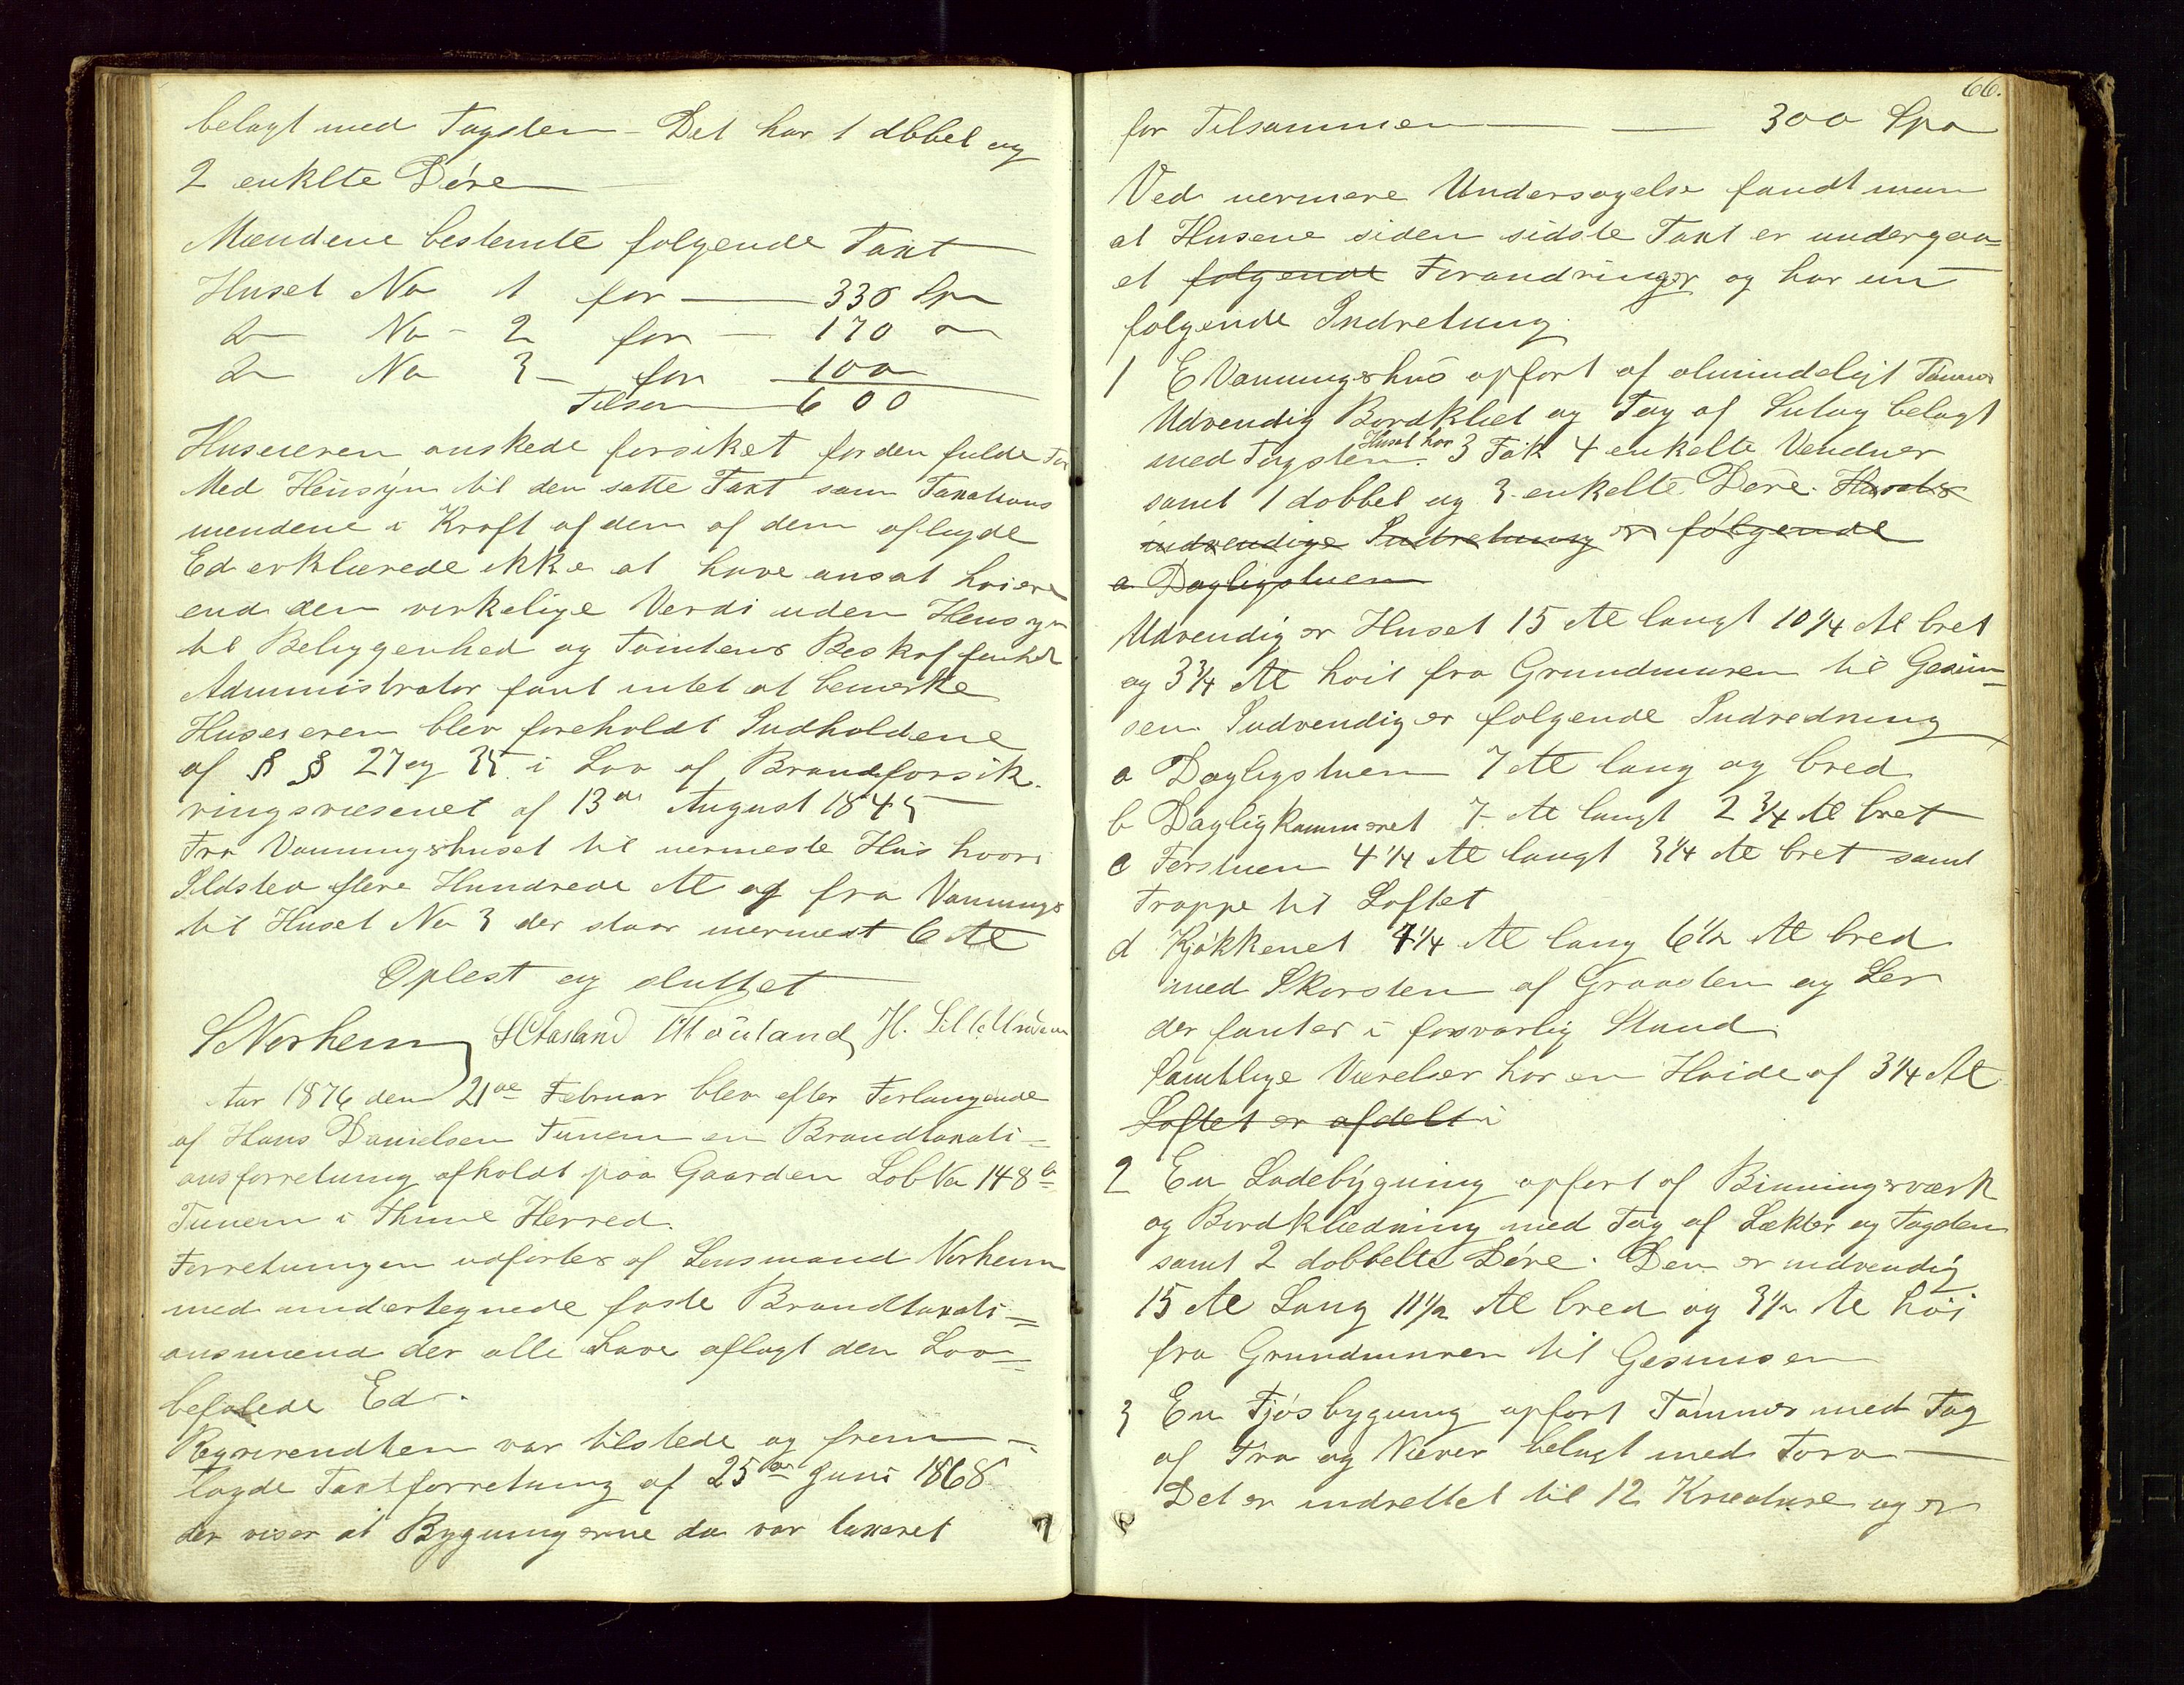 belagt med Tagsten - Det har 1 dbbel og
2 enklte Døre
Mændene bestemte folgende Taxt
Huset No 1 for 330 Spn
do No - 2 for 170
do No 3 - for 100
Tilsm 600
Huseieren ønskede forsiket for den fulde
Med Hensyn til den satte Taxt som Taxations
mendene i Kraft af den af dem aflagde
Ed erklærede ikke at have ansat høiere
end den verkelige Verdi uden Hensyn
til Beliggenhed og Tomtens Beskaffenhed
Administrator fant intet at bemerke
Huseieren blev foreholdt Indholdene
af § § 27 og 35 i Lov af Brandforsik-
ringsvæsenet af 13de August 1845
Fra Vaaningshuset til nermeste Hus hvori
Ildsted flere Hundrede Al og fra Vaanings
til Huset No 3 der staar nermest 6 Al
Oplest og sluttet
SNorheim H. Lille
Aar 1876 den 21de Februar blev efter Forlangende
af Hans Danielsen Tunem en Brandtaxati=
onsforretning afholdt paa Gaarden LobNo 148 b
Tunem i Thime Herred.
Forretningen udførtes af Lensmand Norheim
med undertegnede faste Brandtaxati=
onsmænd der alle have aflagt den Lov=
befalede Ed.
Reqvirendten var tilstede og frem-
lagde Taxtforretning af 25de Juni 1868
der viser at Bygningerne da var taxeret
66.
for Tilsammen 300 Spn
Ved nermere Undersøgelse fandt man
at Husene siden sidste Taxt er undergaa=
et folgende Forandringer og har nu
følgende Indretning
1 E Vaaningshus opført af almindeligt Tømmer
Udvendig Bordklæt og Tag af Sutag belagt
med Tagsten. Huset har 3 Fak 4 enkelte Venduer
samt 1 dobbel og 3 enkelte Døre. Husets
indvendige Indretning er følgende
a Dagligstuen
Udvendig er Huset 15 Al langt 10 1/4 Al bret
og 3 3/4 Al høit fra Grundmuren til Gesim=
sen Indvendig er følgende Indredning
a Dagligstuen 7 Al lang og bred
b Dagligkammeret 7 Al langt 2 3/4 Al bret
c Forstuen 4 1/4 Al langt 3 1/4 Al bret samt
Trappe til Loftet
d Kjøkkenet 4 1/4 Al lang 6 1/2 Al bred
med Skorsten af Graasten og Ler
der fantes i forsvarlig Stand
Samtlige Værelser har en Høide af 3 1/4 Al
Loftet er afdelt i
2 En Ladebygning opført af Binningsværk
og Bordklædning med Tag af Lækter og Tagsten
samt 2 dobbelte Døre. Den er udvendig
15 Al Lang 11 1/2 Al bred og 3 1/2 Al høi
fra Grundmuren til Gesimsen
3 En Fjøsbygning opført Tømmer med Tag
af Tro og Næver belagt med Torv
Det er indrettet til 12 Kreature og er